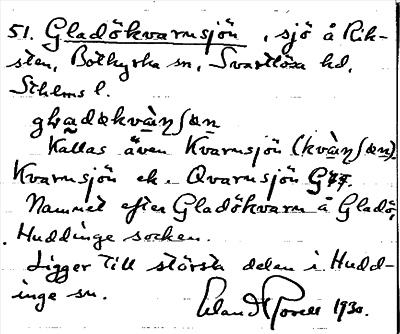 51. Gladökvarnsjön, sjö å Rik-
sten, Botkyrka sn, Svartlösa hd,
Sthlms l.
Kallas även Kvarnsjön
Kvarnsjön ek. Qvarnsjön
Namnet efter Gladökvarn å Gladö,
Huddinge socken.
Ligger till största delen i Hudd-
inge sn. 1930.